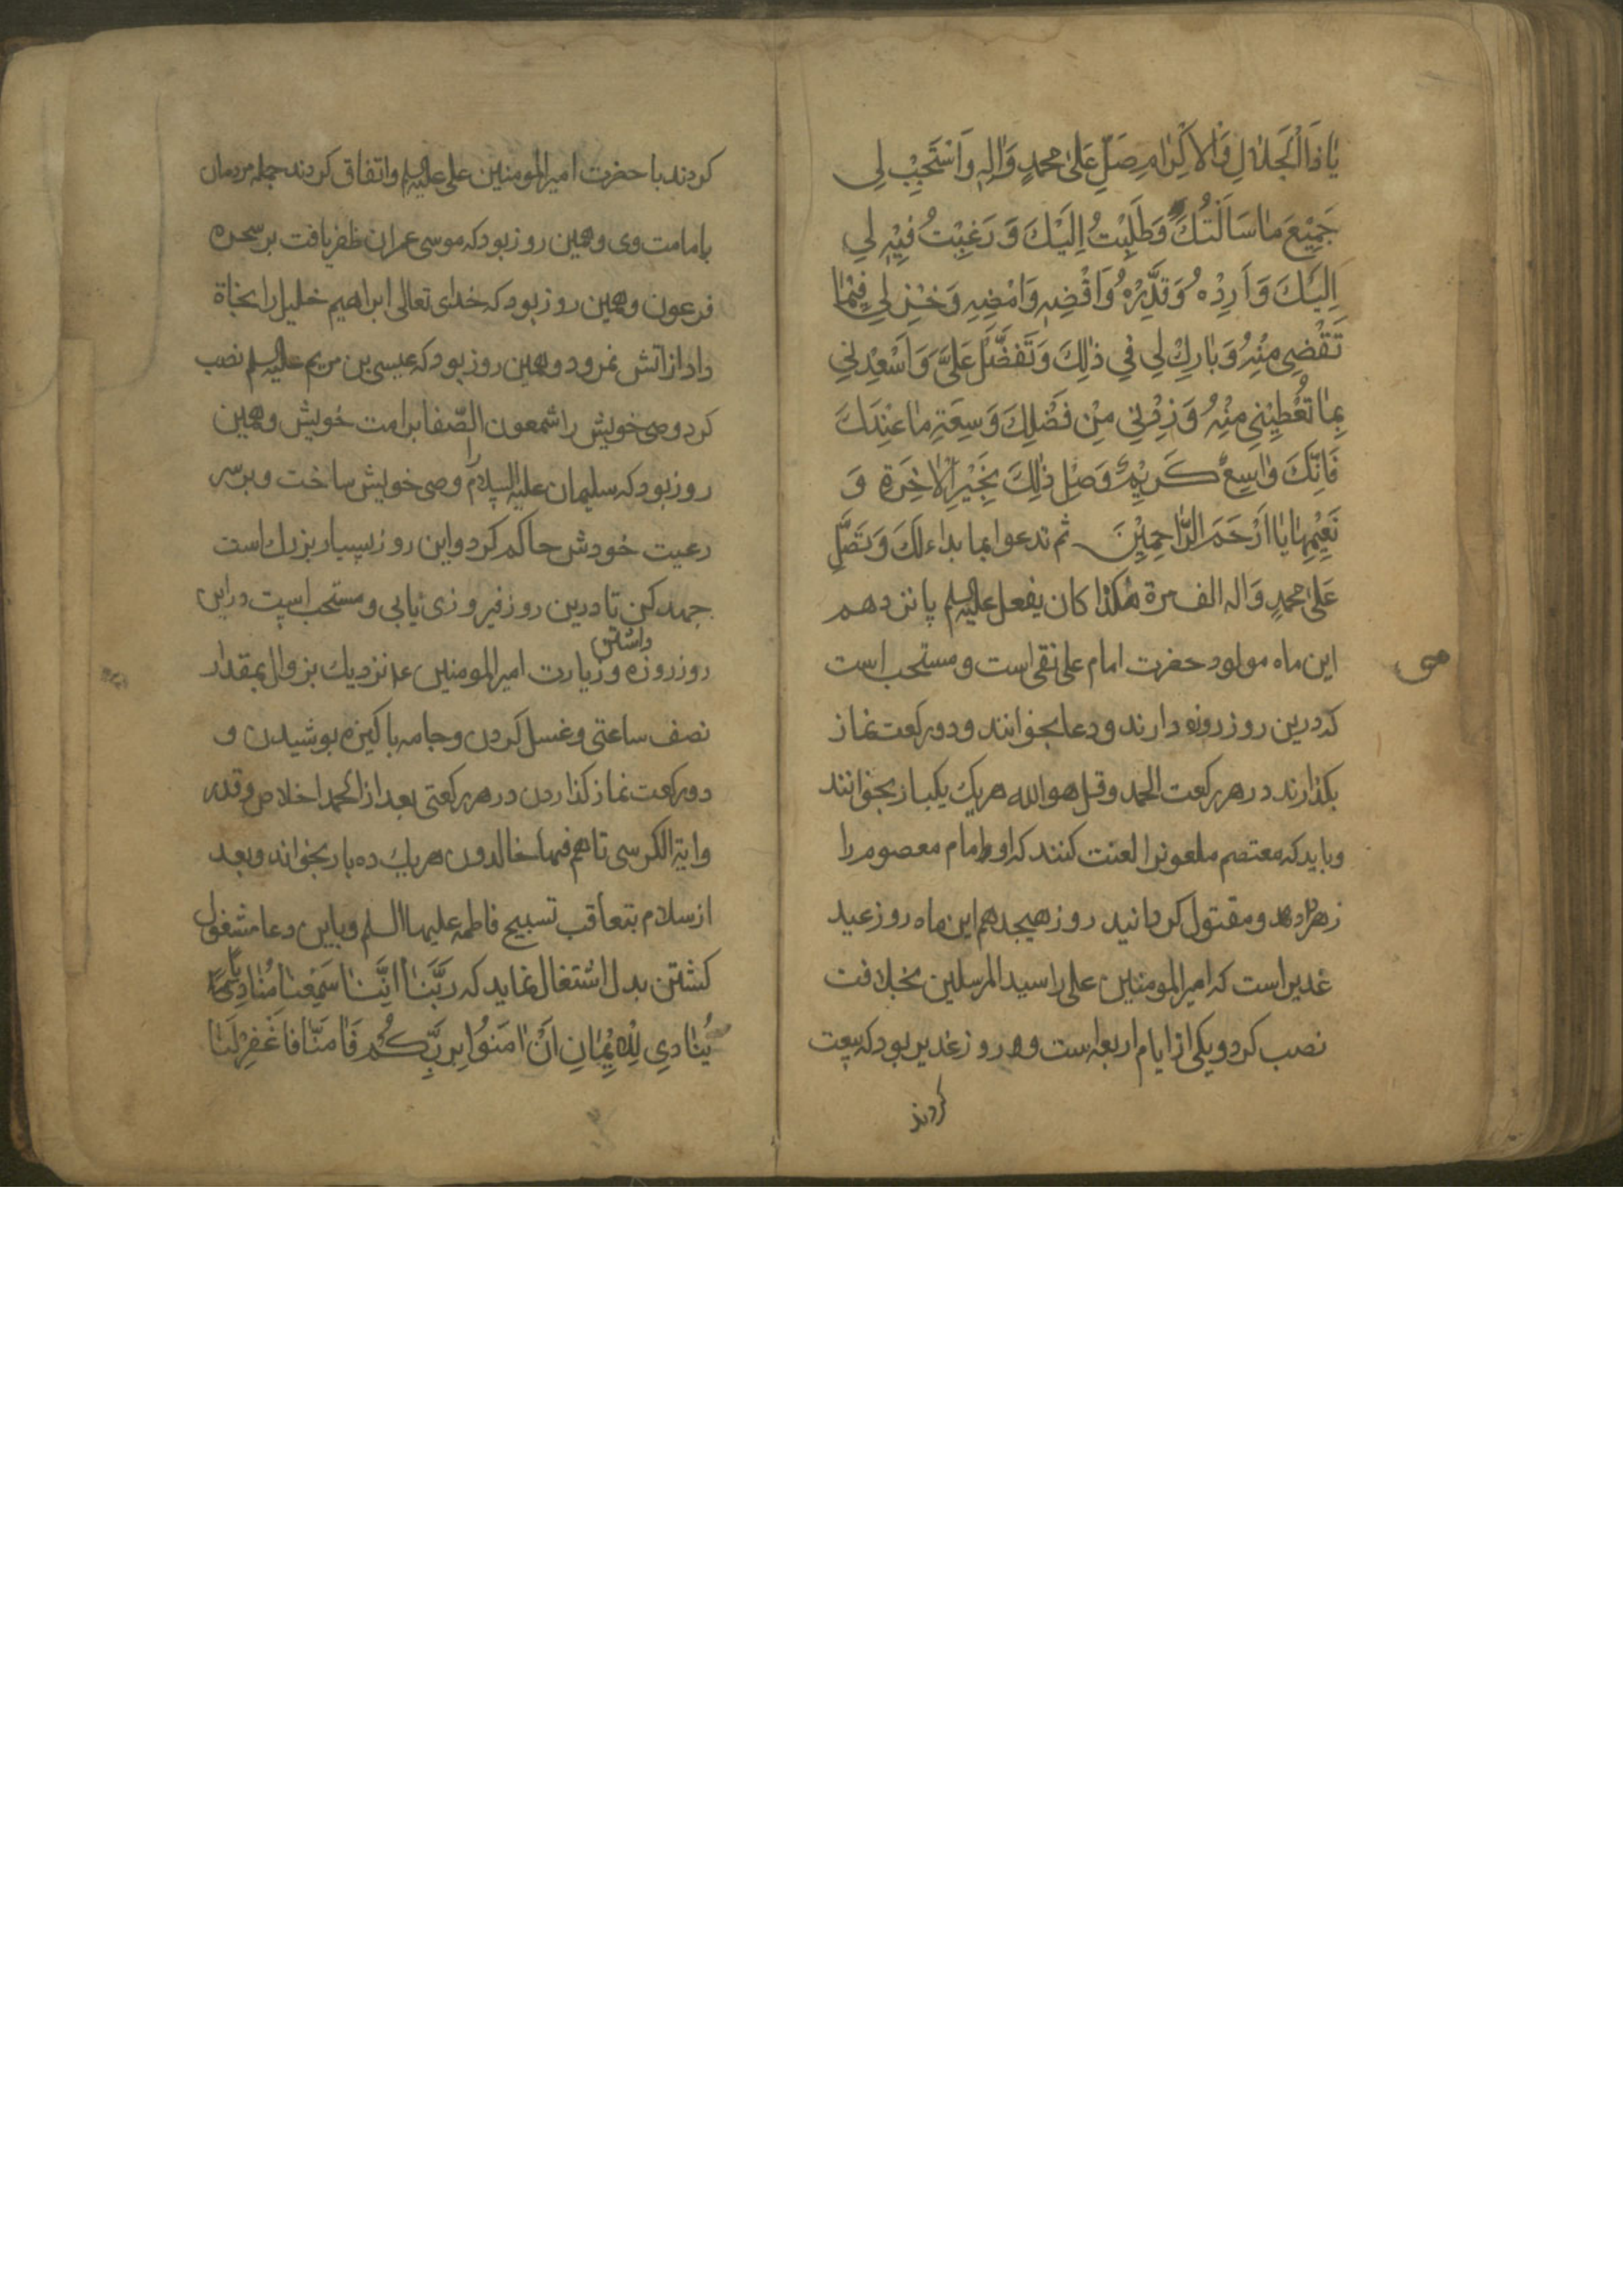 يَا ذَا الْجَلَالِ وَالْاِكْرَامِ صَلِّ عَلٰى محمدٍ وَاٰلِهٖ وَاسْتَجِبْ لِي
جَمِيْعَ مَا سَاَلْتُكَ وَطَلَبْتُ اِلَيْكَ وَ رَغِبْتُ فِيْهِ لي
اِلَيْكَ وَ اَرِدْهُ وَ قَدِّرْهُ وَاقْضِهٖ وَامْضِهِ وَخِرْ لِي فِيْمَا
تَقْضِي مِنْهُ وَ بَارِكْ لِي فِي ذٰلِكَ وَ تَفَضَّلْ عَلَيَّ وَ اَسْعِدْنِي
بِمَا تُعْطِيْنِي مِنْهُ وَ زِدْنِي مِنْ فَضْلِكَ وَسِعَةِ مَا عِنْدَكَ
فَاِنَّكَ وَاسِعٌ كَرِيْمٌ وَصِلْ ذٰلِكَ بِخَيْرِ الْاٰخِرَةِ وَ
نَعِيْمِهَا يَا اَرْحَمَ الرَّاحِمِيْنَ ثم تدعوا بما بداء لَكَ وَ تُصَلِّ
عَلىٰ محمدٍ وَاله الف مرة هٰكَذا كان يفعل عليه السلم پانزدهم
این ماه مولود حضرت امام علی نقی است و مستحب است
که درین روز روزه دارند و دعا بخوانند و دو رکعت نماز
بکذارند در هر رکعت الحمد و قل هو الله هر یک یکبار بخوانند
و باید که معتصم ملعونرا لعنت کنند که او امام معصوم را
زهر داد و مقتول کردانید روز هیجدهم این ماه روز عید
غدیر است که امیر المومنین علی را سید المرسلین بخلافت
نصب کرد و یکی از ایام اربعه است و در روز غدیر بود که بیعت
کردند
کردند با حضرت امیر المومنین علی علیه السلم و اتفاق کردند جمله مردمان
بامامت وی و همین روز بود که موسی عمران ظفر یافت بر سحره
فرعون و همین روز بود که خدای تعالی ابراهیم خلیل را نجاة
داد از آتش نمرود و همین روز بود که عیسی بن مریم علیه السلم نصب
کرد وصی خویش را شمعون الصّفا بر امت خویش و همین
روز بود که سلیمان علیه السلام را وصی خویش ساخت و بر سر
رعیت خودش حاکم کرد و این روز بسیار بزرك است
جهد کن تا درین روز فیروزی یابی و مستحب است در این
روز روزه داشتن و زیارت امیر المومنین ع نزدیك بزوال بمقدار
نصف ساعتی و غسل کردن و جامه پاکیزه پوشیدن و
دو رکعت نماز کذاردن در هر رکعتی بعد از الحمد اخلاص و قدر
و ایة الکرسی تا هم فیها خالدون هر یك ده بار بخواند و بعد
از سلام بتعاقب تسبیح فاطمه علیها السلم و باین دعا مشغول
کشتن بدل اشتغال نماید که رَبَّنَا اِنَّنَا سَمِعْنَا مُنَادِيًا
يُنَادِي لِلْاِيْمَانِ اَنْ اٰمَنُوا بِرَبِّكُمْ فَاٰمَنَّا فَاغْفِرْ لَنَا